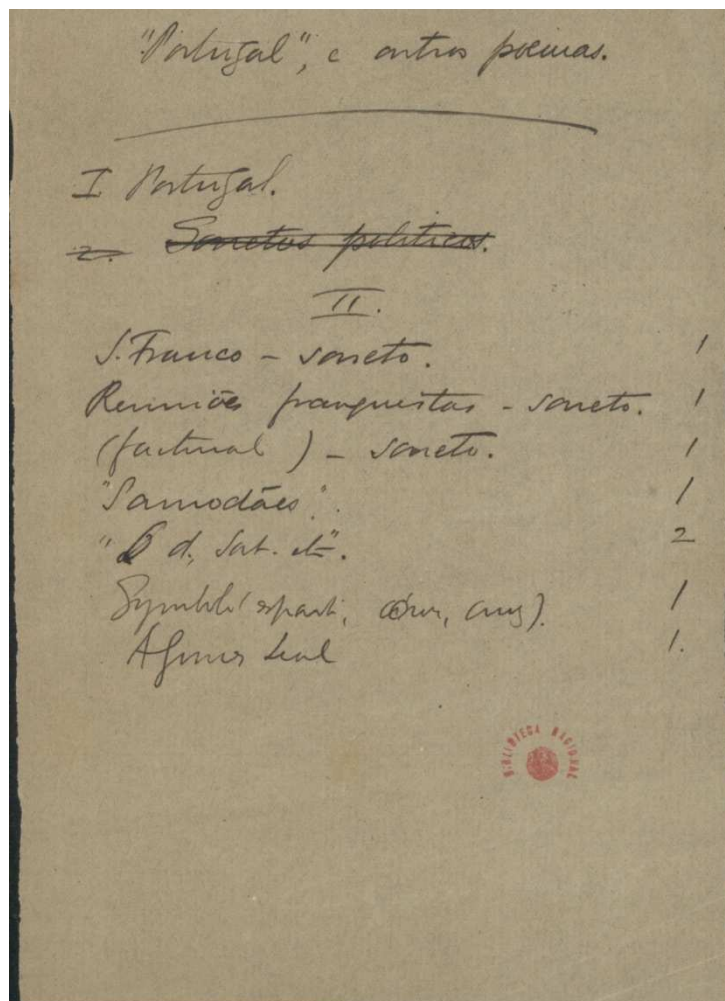 "Portugal", e outros poemas.
I Portugal.
2. Sonetos politicos.
II.
J. Franco – soneto. 1
Reuniões franquistas – soneto. 1
( ) – soneto. 1
"Samodães". 1
" d, Sat. etc". 2
Symbolo (espada, coroa, cruz). 1
A Gomes Leal 1.
BIBLIOTECA NACIONAL